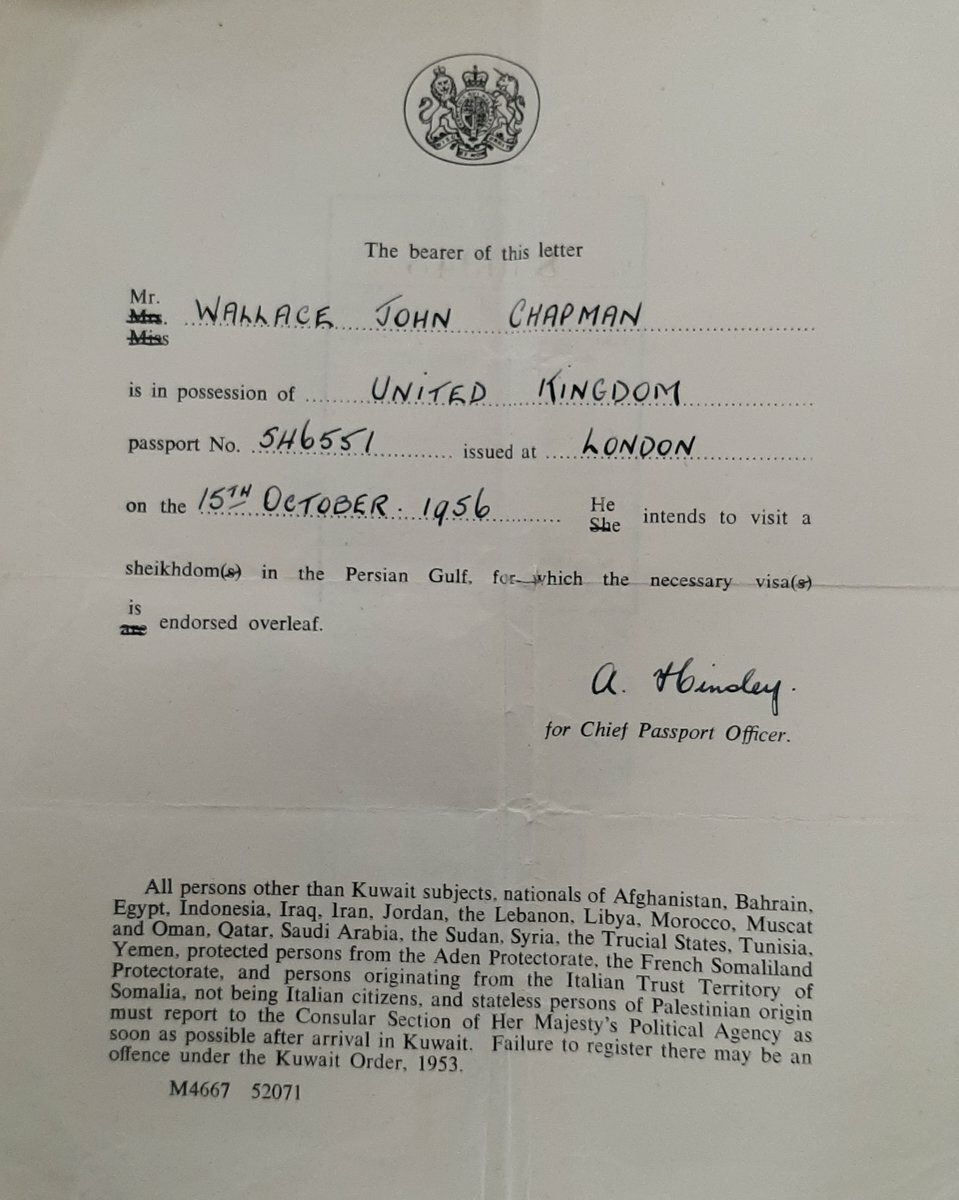 The bearer of this letter
Mr.
Mrs. WALLACE JOHN CHAPMAN
Miss
is in possession of UNITED KINGDOM
passport No. 5H6551 issued at LONDON
on the 15TH OCTOBER. 1956 He
She intends to visit a
sheikhdom(s) in the Persian Gulf, for which the necessary visa(s)
is
are endorsed overleaf.
A. Hindley.
for Chief Passport Officer.
All persons other than Kuwait subjects, nationals of Afghanistan, Bahrain,
Egypt, Indonesia, Iraq, Iran, Jordan, the Lebanon, Libya, Morocco, Muscat
and Oman, Qatar, Saudi Arabia, the Sudan, Syria, the Trucial States, Tunisia,
Yemen, protected persons from the Aden Protectorate, the French Somaliland
Protectorate, and persons originating from the Italian Trust Territory of
Somalia, not being Italian citizens, and stateless persons of Palestinian origin
must report to the Consular Section of Her Majesty's Political Agency as
soon as possible after arrival in Kuwait. Failure to register there may be an
offence under the Kuwait Order, 1953.
M4667 52071